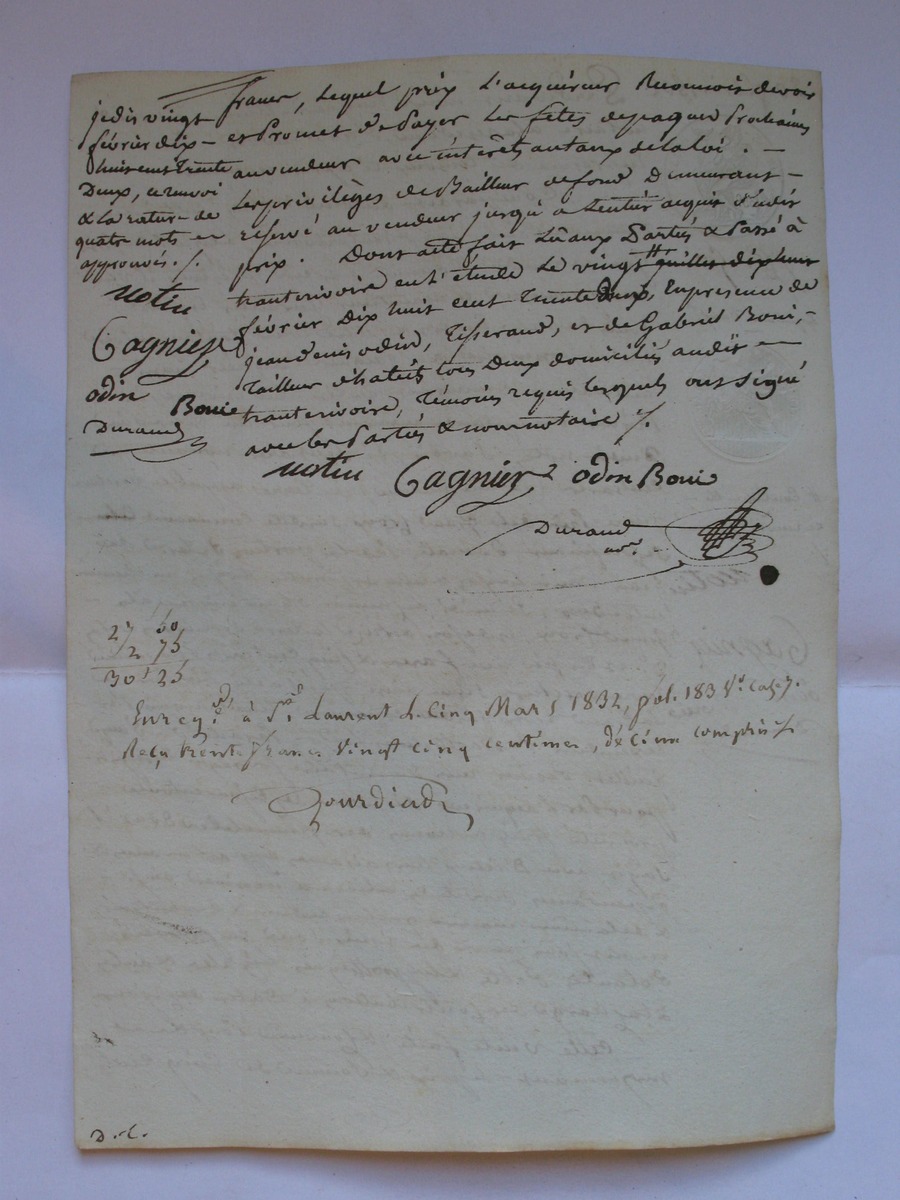 francs, lequel prix l'acquéreur Reconnoit devoir
et Promet de Payer les fêtes de paques Prochaines
au vendeur avec intérêts au taux de la loi. —
Les privilèges de Bailleur de fond Demeurant —
réservé au vendeur jusqu'a l'entier acquit dudit
prix. Dont acte fait Lu aux Parties & Passé à
trantcrivoire en l'étude Le vingt
février Dix huit cent trente Deux, En présence de
jean denis odin, Tisserand, et de Gabriel Boui,
Tailleur d'habits tous Deux domiciliés audit —
trantcrivoire, Témoins requis lesquels ont signé
avec les Parties & nous notaire /.
je dis vingt
février dix —
huit cent trente
Deux, ce renvoi
& la rature de
quatre mots en
approuvés. /.
notin
Gagnier
odin
Bouie
Durand
notin Gagnier odin Boui
Durand
nore.
27 60
2 75
30 25
Enreg.é à St. Laurent Le Cinq Mars 1832, fol. 183 Vo Case 7.
Reçu trente francs Vingt cinq centimes, décime compris /.
Gourdiad
D.L.